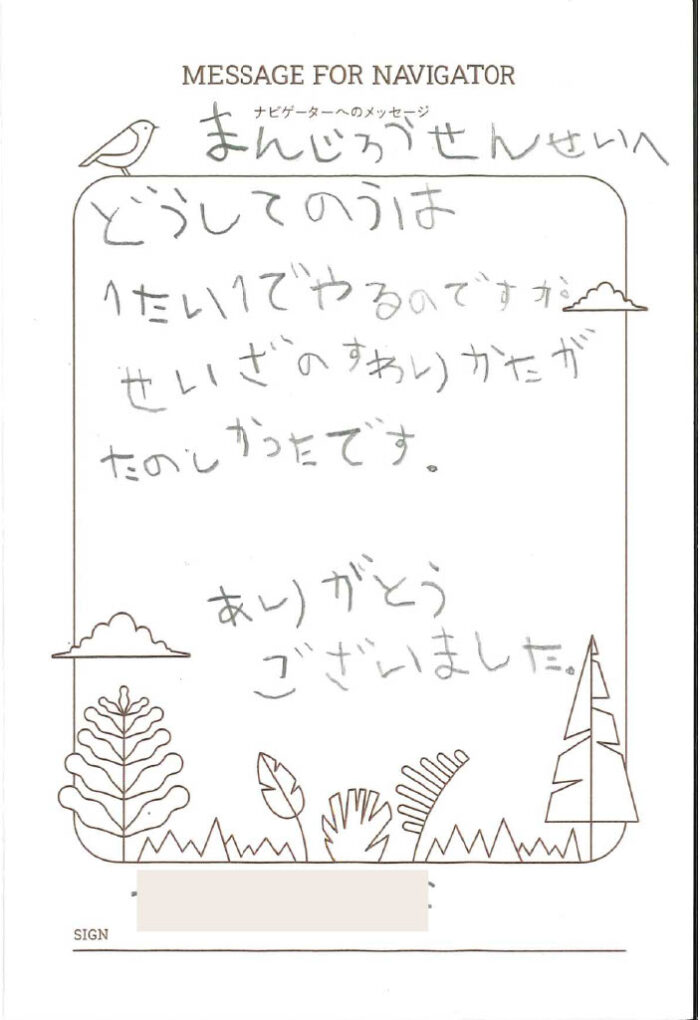 MESSAGE FOR NAVIGATOR
ナビゲーターへのメッセージ
まんじろうせんせいへ
どうしてのうは
1たい1でやるのですか。
せいざのすわりかたが
たのしかったです。
ありがとう
ございました。
SIGN